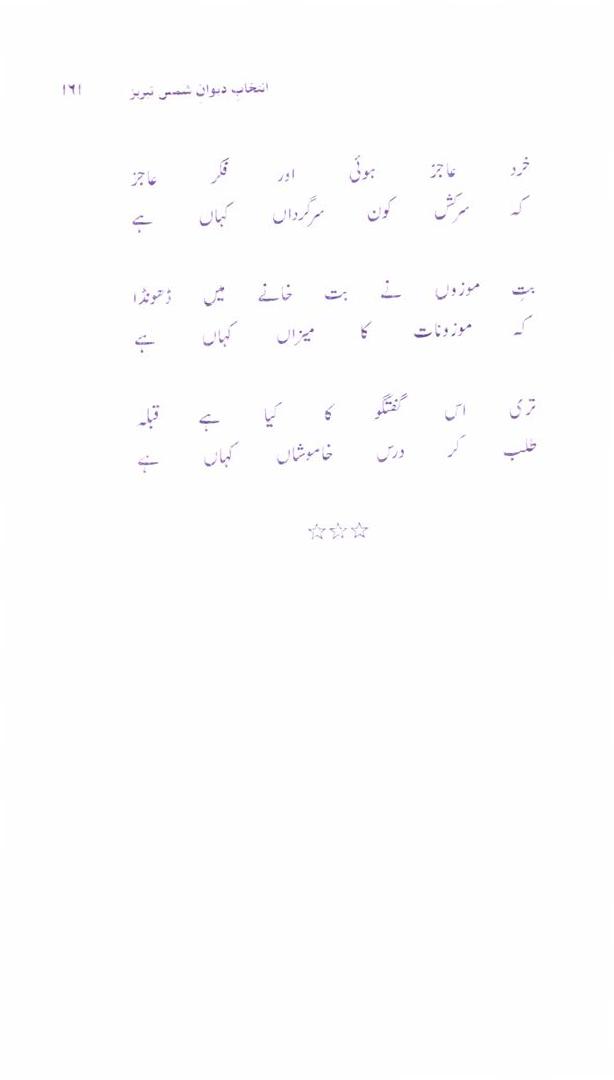 انتخاب دیوانِ شمس تبریز ۱۶۱
خرد عاجز ہوئی اور فکر عاجز
کہ سرکش کون سرگرداں کہاں ہے
بتِ موزوں نے بت خانے میں ڈھونڈا
کہ موزونات کا میزاں کہاں ہے
تری اس گفتگو کا کیا ہے قبلہ
طلب کر درس خاموشاں کہاں ہے
☆☆☆